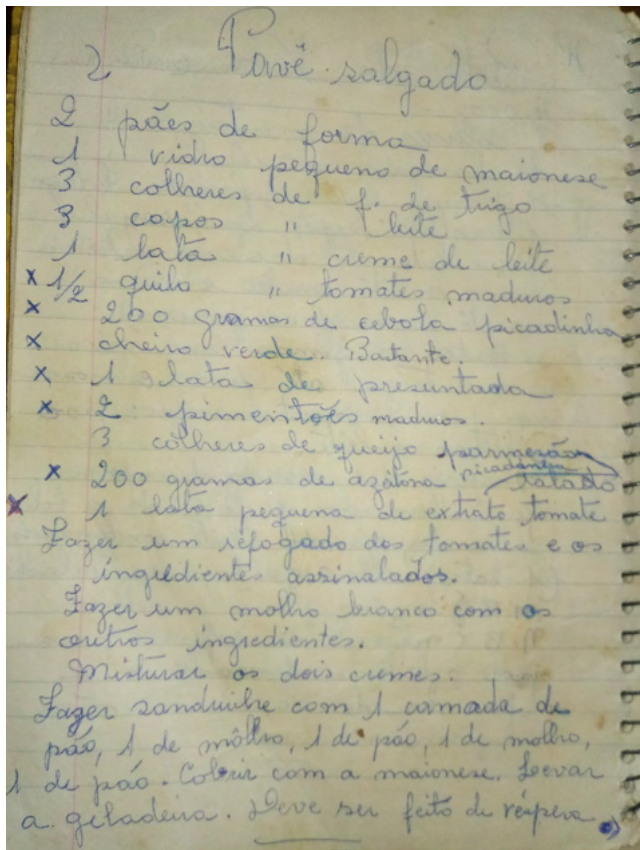 2 Pavê salgado
2 pães de forma
1 vidro pequeno de maionese
3 colheres de f. de trigo
3 copos " leite
1 lata " creme de leite
x 1/2 quilo " tomates maduros
x 200 gramas de cebola picadinha
x cheiro verde. Bastante.
x 1 lata de presuntada
x 2 pimentões maduros.
3 colheres de queijo parmezão ralado
x 200 gramas de azeitona picadinha
x 1 lata pequena de extrato tomate
Fazer um refogado dos tomates e os
ingredientes assinalados.
Fazer um molho branco com os
outros ingredientes.
Misturar os dois cremes.
Fazer sanduiche com 1 camada de
pão, 1 de môlho, 1 de pão, 1 de molho,
1 de pão. Cobrir com a maionese. Levar
a geladeira. Deve ser feito de véspera